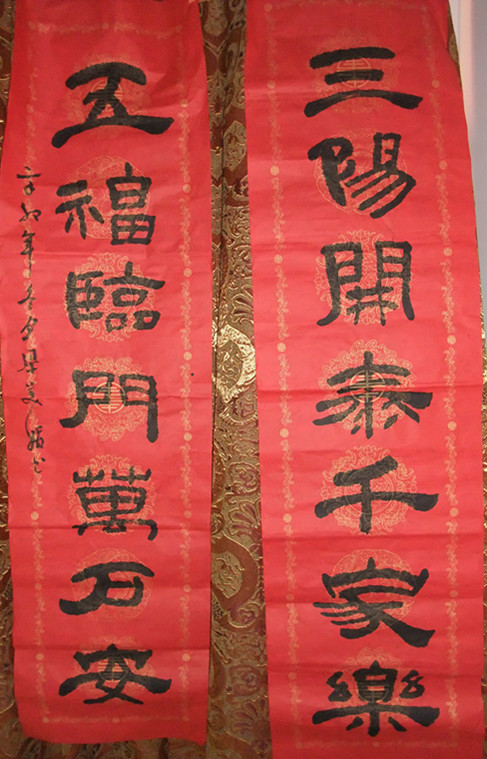 三陽開泰千家樂
五福臨門萬石安
辛卯年冬夕梁美书